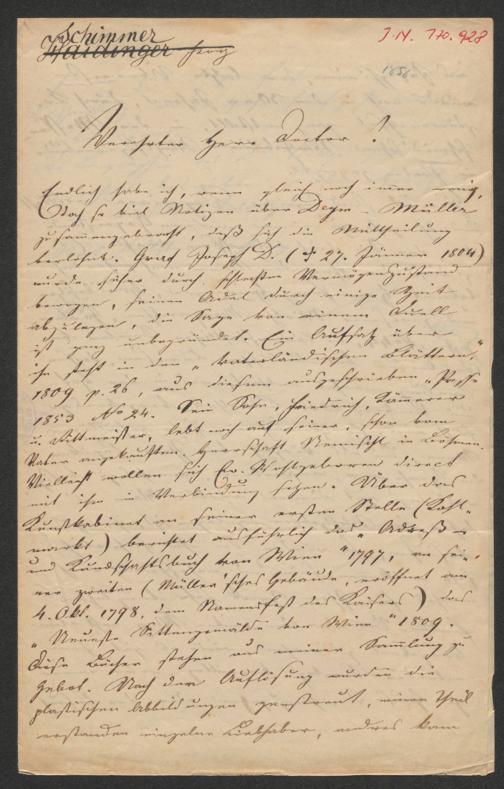 Schimmer
Haidinger
I.N. 170.928
1856
Verehrter Herr Doctor!
Endlich habe ich, wenn gleich noch immer wenig,
doch so viel Notizen über Deym-Müller
zusammengebracht, daß sich die Mittheilung
verlohnt. Graf Joseph D. († 27. Jänner 1804)
wurde früher durch schlechten Vermögenszustand
bewogen, seinen Adel durch einige Zeit
abzulegen, die Sage von einem Duell
ist ganz unbegründet. Ein Aufsatz über
ihn steht in den „vaterländischen Blättern",
1809 p. 26, aus diesem ausgeschrieben
1853 No 24. Sein Sohn, Friedrich, Kämmerer
u. Rittmeister, lebt noch auf seiner, schon vom
Vater angekauften Herrschaft Nemischl in Böhmen.
Vielleicht wollen sich Ew. Wohlgeboren direct
mit ihm in Verbindung setzen. Über das
Kunstkabinet an seiner ersten Stelle (Kohl-
markt) berichtet ausführlich das „Adreß-
und Kundschaftsbuch von Wien" 1797, an sei-
ner zweiten (Müller'sches Gebäude, eröffnet am
4. Okt. 1798, dem Namensfest des Kaisers) das
„Neueste Sittengemälde von Wien" 1809.
Diese Bücher stehen aus meiner Sammlung zu
Gebot. Nach der Auflösung wurden die
plastischen Abbildungen zerstreut, einen Theil
erstanden einzelne Liebhaber, andres kam